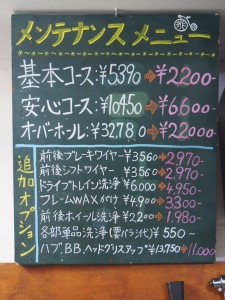 メンテナンスメニュー
基本コース:¥5390➡¥2200-
安心コース:¥10450➡¥6600-
オーバーホール:¥32780➡¥22000-
追加オプション
前後ブレーキワイヤー¥3560➡2,970-
前後シフトワイヤー¥3560➡2,970-
ドライブトレイン洗浄¥6,000➡4,950-
フレームWAXがけ¥4,900➡3300-
前後ホイール洗浄¥2,200➡1,980-
各部単品洗浄(要バラシ代)¥550～
ハブ,BB,ヘッドグリスアップ¥13,750➡11,000